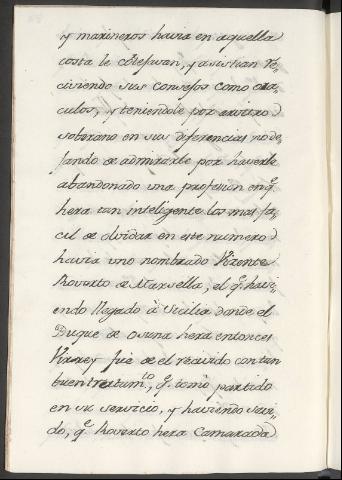 y marineros havia en aquella
costa le obseruan, y asistian re-
civiendo sus consejos como ora-
culos, y teniendole por arvitro
soberano en sus diferencias no de-
jando de admirarle por haverle
abandonado una profesion en q.e
hera tan inteligente los mas fa-
cil de olvidar en este numero
havia uno nombrado Vizente
Roverto de Marsella, el q.e havi-
endo llegado à Sicilia donde el
Duque de Osuna hera entonces
Virrey fue de el recivido con tan
buen tratam.to, q.e tomò partido
en su servicio, y haviendo savi-
do, q.e Roverto hera Camarada